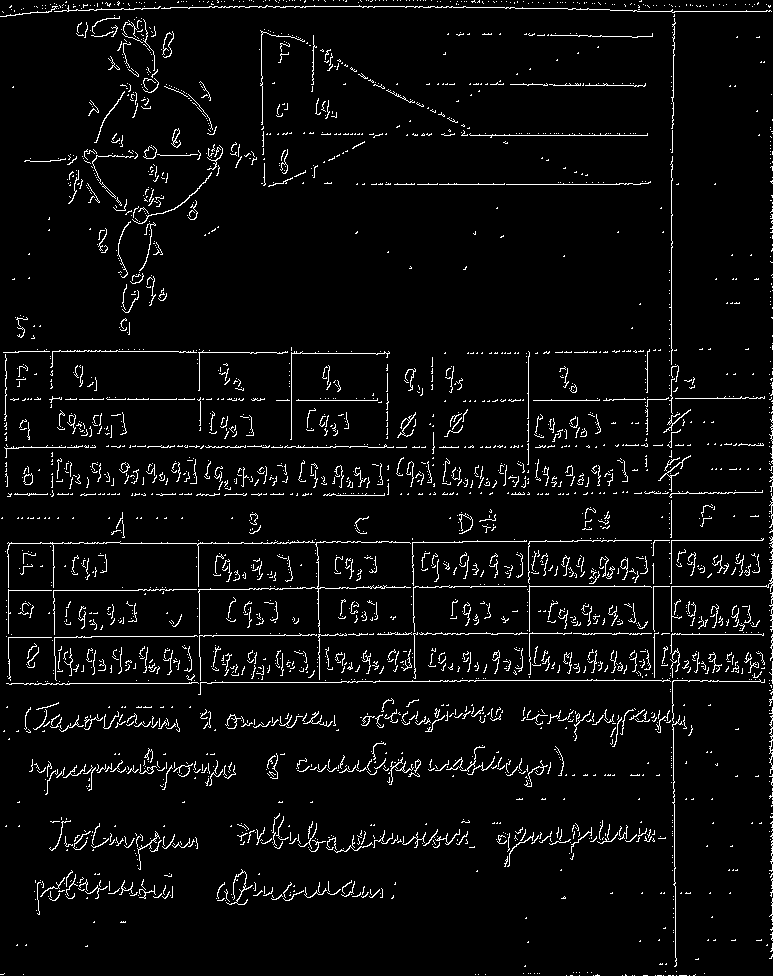 a q₃ b
λ λ
q₂
λ
a b
q₁ q₄ q₇
λ q₅
b
b λ
q₆
a
F q₁
a q₄
b
5:
F q₁ q₂ q₃ q₄ q₅ q₆ q₇
a [q₃,q₄] [q₃] [q₃] ∅ ∅ [q₅,q₆] ∅
b [q₂,q₃,q₅,q₆,q₇] [q₂,q₃,q₇] [q₂,q₃,q₇] [q₇] [q₅,q₆,q₇] [q₅,q₆,q₇] ∅
A B C D E F
F [q₁] [q₃,q₄] [q₃] [q₂,q₃,q₇] [q₂,q₃,q₅,q₆,q₇]
a [q₃,q₄] [q₃] [q₃] [q₃] [q₃,q₅,q₆]
b [q₂,q₃,q₅,q₆,q₇] [q₂,q₃,q₇] [q₂,q₃,q₇] [q₂,q₃,q₇] [q₂,q₃,q₅,q₆,q₇]
(Галочками я отмечал обобщённые конфигурации,
присутствующие в столбцах таблицы)
Построим эквивалентный детермини-
рованный автомат: